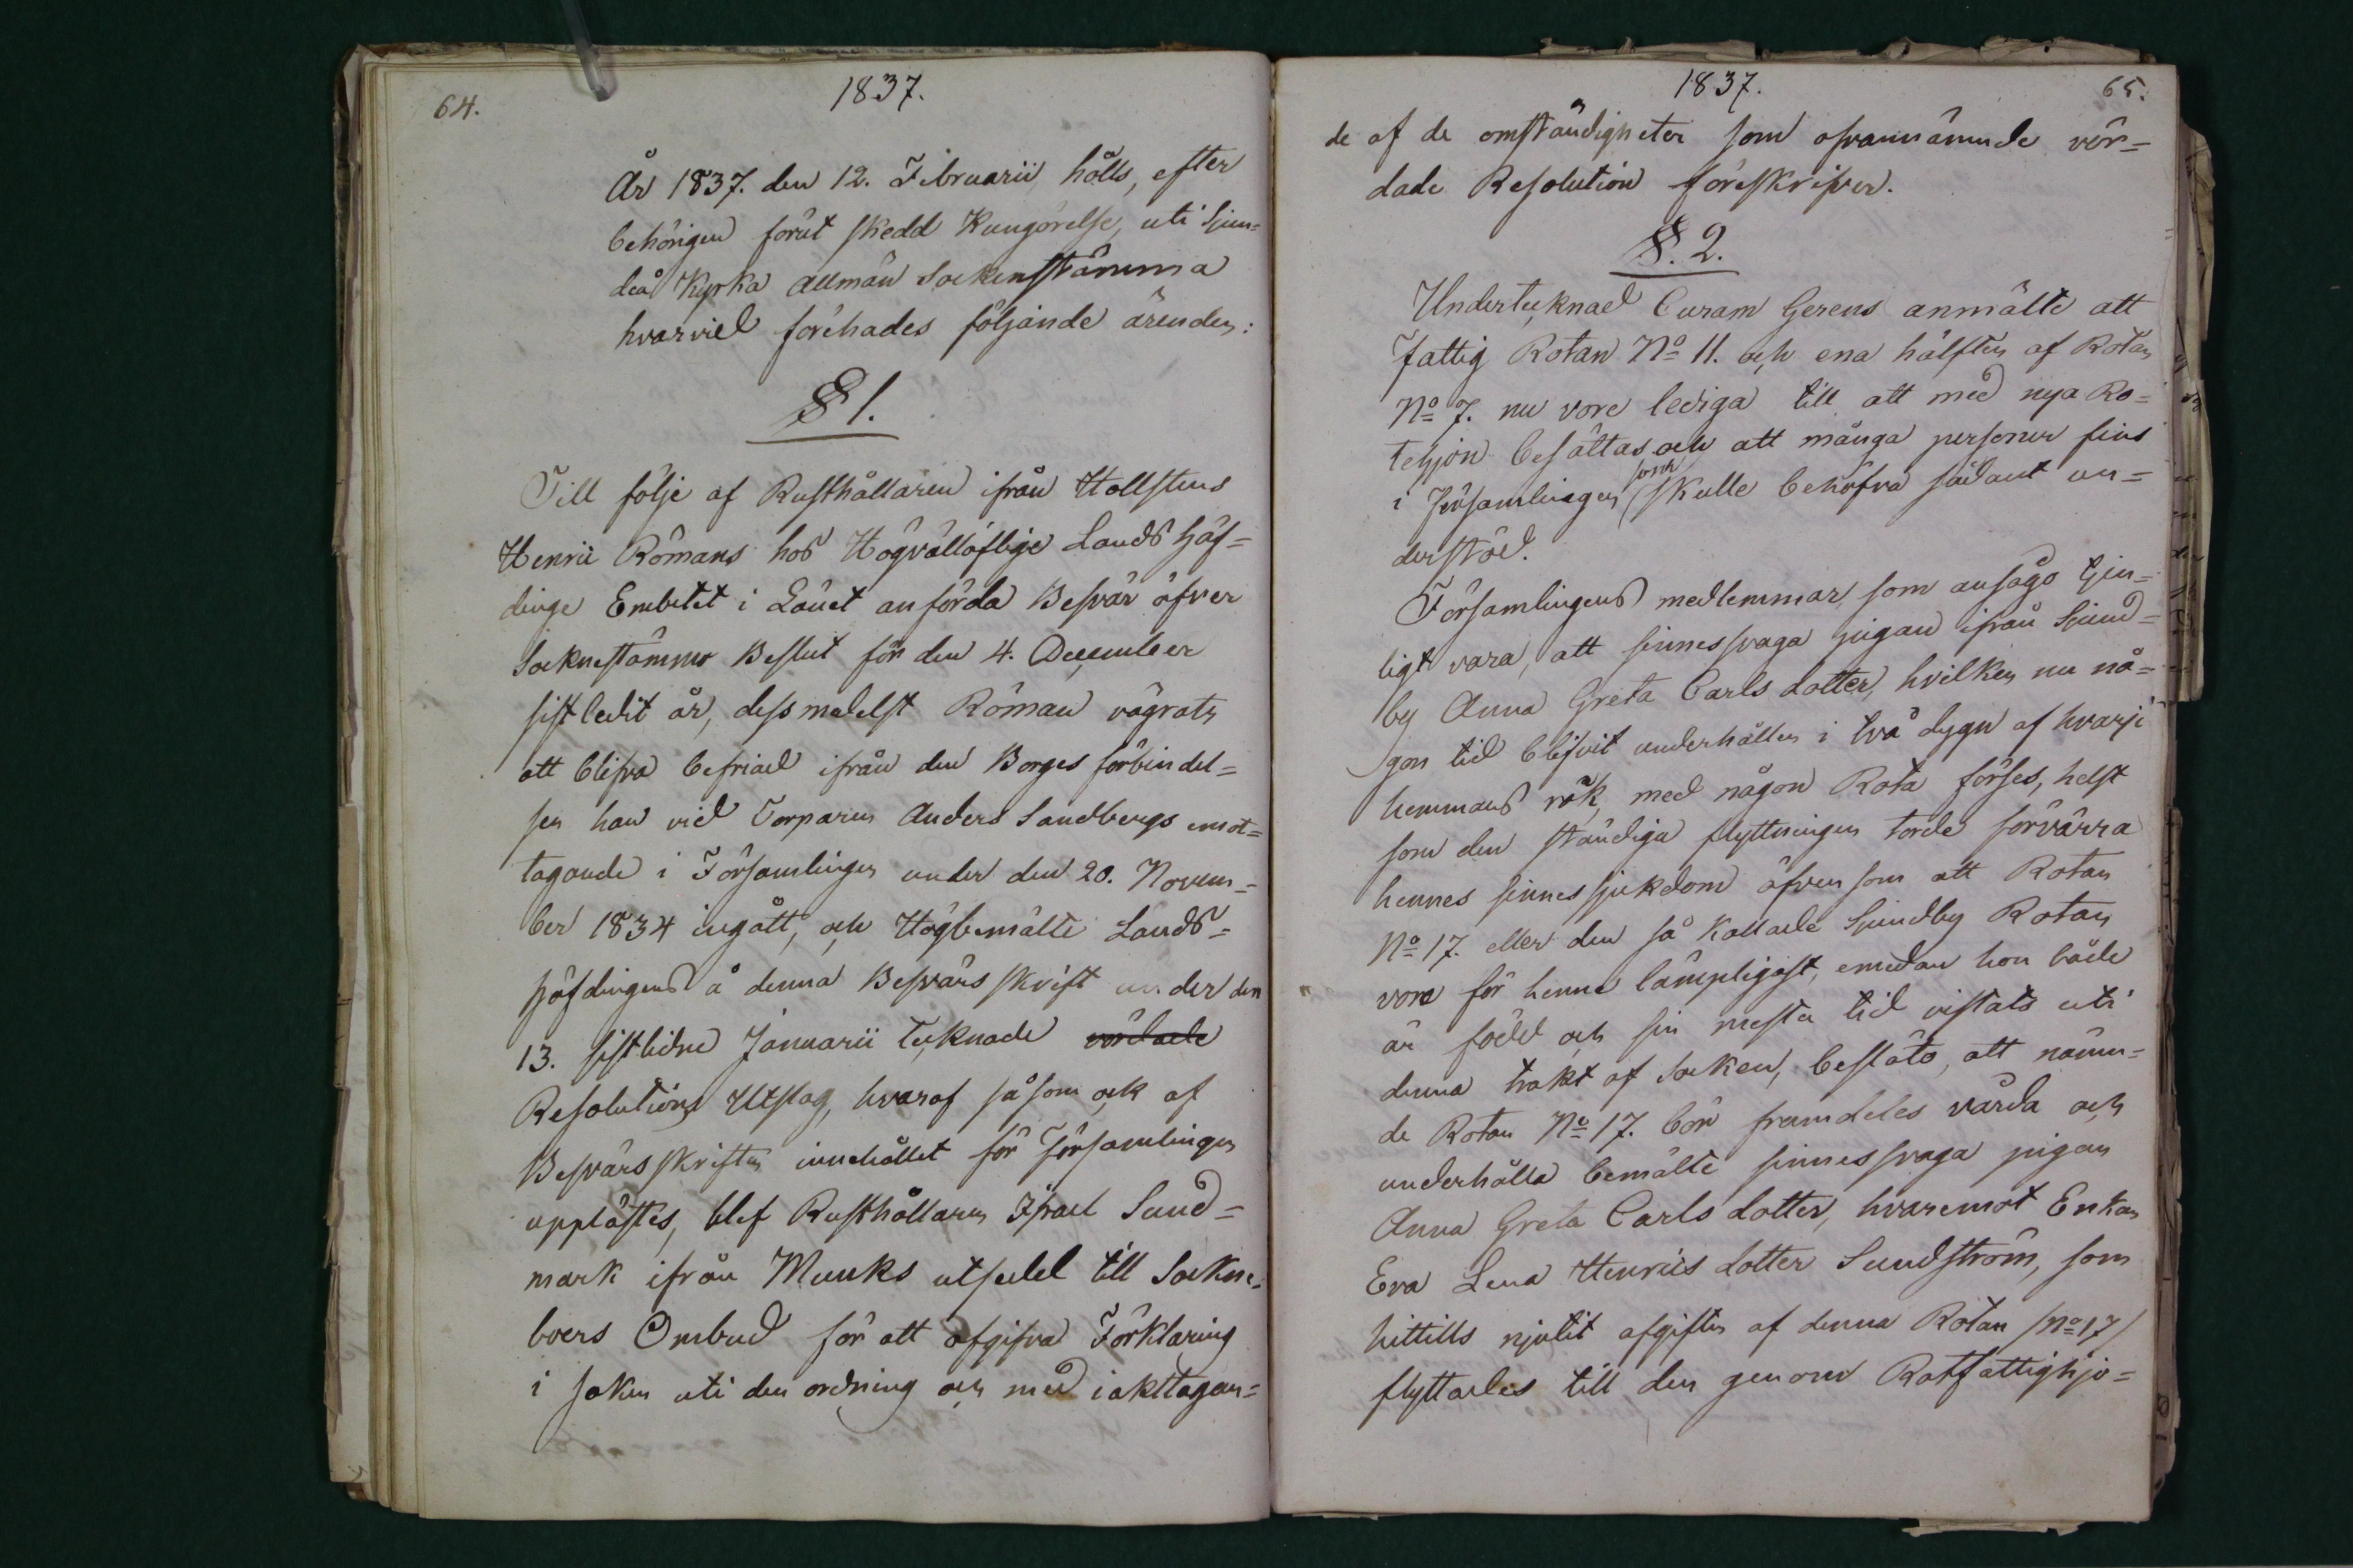 64.
1837.
År 1837. den 12. Februarii, hölls, efter
behörigen förut skedd Kungörelse, uti Sjun-
deå Kyrka allmän Sockenstämma
hvarvid förehades följande ärenden:
§ 1.
Till följe af Rusthållaren ifrån Hollstens
Henrii Römans hos Högvällöflige Landshöf-
dinge Embetet i Länet anförda Besvär öfver
Socknestämmo Beslut för den 4. December
sistledit år, dessmedelst Röman vägrats
att blifva befriad ifrån den Borges förbindel-
sen han vid Torparen Anders Sandbergs emot-
tagande i Församlingen under den 20. Novem-
ber 1834 ingått, och Högbemälte Lands-
höfdingens å denna Besvärsskrift under den
13. sistlidne Januarii tecknade vördade
Resolutions Utslag, hvaraf såsom ock af
Besvärsskriften innehållet för Församlingen
upplästes, blef Rusthållaren Israel Sund-
mark ifrån Munks utsedd till Sockne-
boers Ombud för att afgifva Förklaring
i saken uti den ordning och med iakttagan-
1837.
65.
de af de omständigheter som ofvannämnde vör-
dade Resolution föreskrifver.
§. 2.
Undertecknad Curam Gerens anmälte att
Fattig Rotan No 11. och ena hälften af Rotan
No 7. nu vore lediga till att med nya Ro-
tehjon besättas och att många personer fins
i Församlingen som skulle behöfva sådant un-
derstöd.
Församlingens medlemmar, som ansågo tjen-
ligt vara, att sinnessvaga pigan ifrån Sjund-
by Anna Greta Carls dotter, hvilken nu nå-
gon tid blifvit underhållen i två dygn af hvarje
hemmans rök, med någon Rota förses, helst
som den ständiga flyttningen torde förvärra
hennes sinnessjukdom äfvensom att Rotan
No 17. eller den så kallade Sjundby Rotan
vore för henne lämpligast, emedan hon både
är född och sin mesta tid vistats uti
denna trakt af socken, beslöto, att nämn-
de Rotan No 17. bör framdeles vårda och
underhålla bemälte sinnessvaga pigan
Anna Greta Carls dotter, hvaremot Enkan
Eva Lena Henriis dotter Sundström, som
hittills njutit afgiften af denna Rotan /No 17/
flyttades till den genom Rotfattighjo-